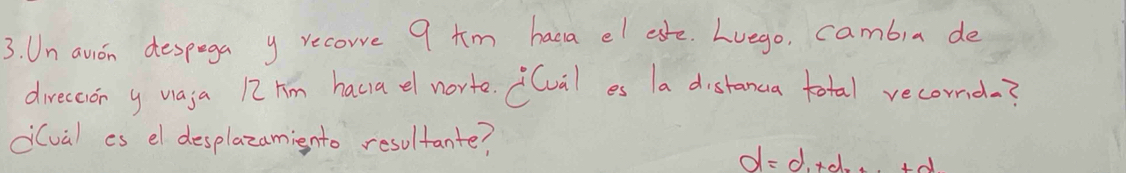 3. Un avión despega y recorre 9 km hacia el este. Luego, cambia de
dirección y viaja 12 km hacia el norte. ¿Cuál es la distancia total recorrida?
¿Cuál es el desplazamiento resultante?
d = d₁+d₂+